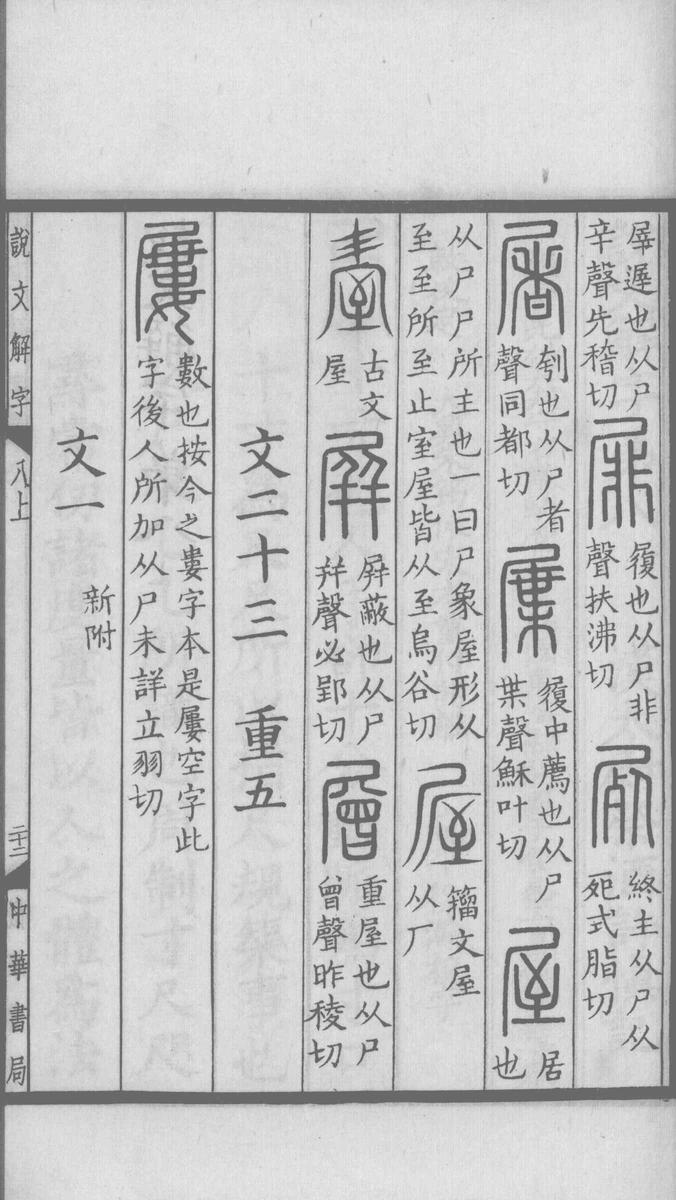 屖遲也从尸
辛聲先稽切
屝
履也从尸非
聲扶沸切
屍
終主从尸从
死式脂切
屠
刳也从尸者
聲同都切
屟
履中薦也从尸
枼聲穌叶切
屋
居
也
从尸尸所主也一曰尸象屋形从
至至所至止室屋皆从至烏谷切
籀文屋
从厂
古文
屋
屏
屏蔽也从尸
幷聲必郢切
層
重屋也从尸
曾聲昨稜切
文二十三 重五
屢
數也按今之婁字本是屢空字此
字後人所加从尸未詳立羽切
文一 新附
說文解字 八上 二十二 中華書局